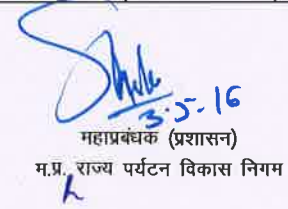 3.5.16
महाप्रबंधक (प्रशासन)
म.प्र. राज्य पर्यटन विकास निगम